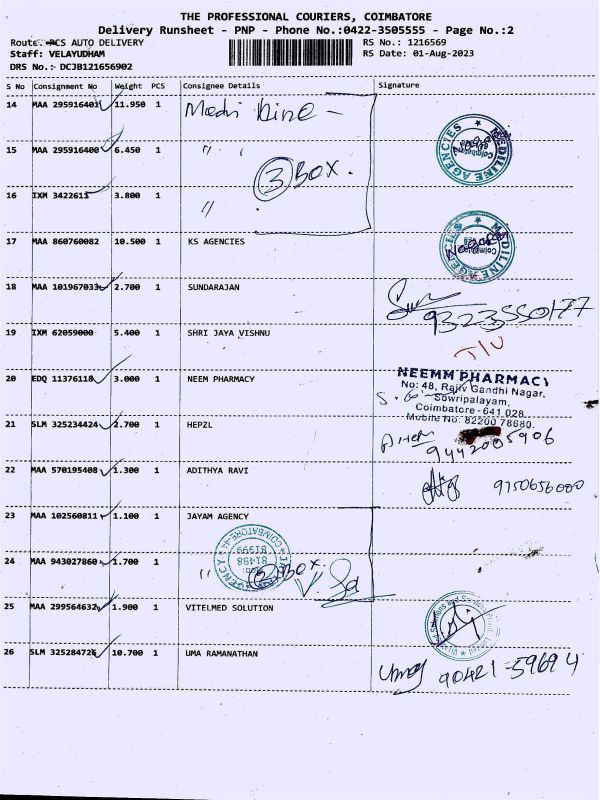 THE PROFESSIONAL COURIERS, COIMBATORE
Delivery Runsheet - PNP - Phone No.:0422-3505555 - Page No.:2
Route: PCS AUTO DELIVERY
RS No.: 1216569
Staff: VELAYUDHAM
RS Date: 01-Aug-2023
DRS No.:- DCJB121656902
S No Consignment No Weight PCS Consignee Details Signature
14 MAA 295916401 11.950 1 Medi line -
15 MAA 295916400 6.450 1 " "
3 Box.
MEDILINE AGENCIES Coimbatore
16 IXM 3422613 3.800 1 "
17 MAA 860760082 10.500 1 KS AGENCIES
MEDILINE AGENCIES Coimbatore
18 MAA 101967033 2.700 1 SUNDARAJAN
9323550177
19 IXM 62059000 5.400 1 SHRI JAYA VISHNU
20 EDQ 11376118 3.000 1 NEEM PHARMACY
NEEMM PHARMACY
No: 48, Rajiv Gandhi Nagar,
Sowripalayam,
Coimbatore - 641 028.
Mobile No: 82200 78680.
21 SLM 325234424 2.700 1 HEPZL
9442005906
22 MAA 570195408 1.300 1 ADITHYA RAVI
9750656000
23 MAA 102560811 1.100 1 JAYAM AGENCY
24 MAA 943027860 1.700 1 " 2 Box
25 MAA 299564632 1.900 1 VITELMED SOLUTION
26 SLM 325284726 10.700 1 UMA RAMANATHAN
Uma 90421-59694